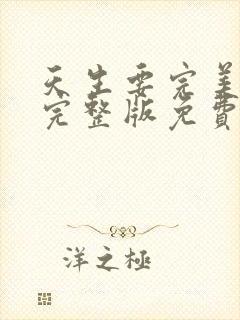 天生要完美
完整版免費
洋之極